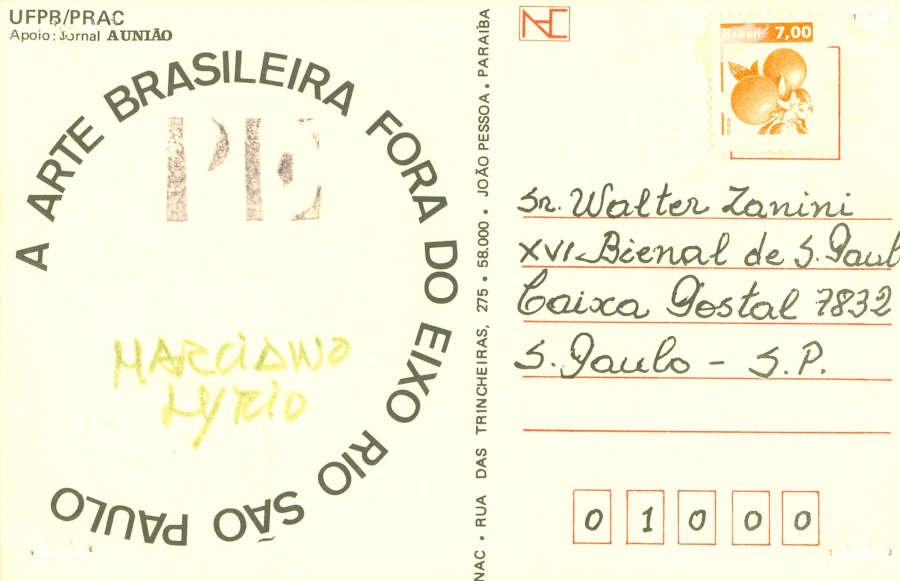 UFPB/PRAC
Apoio: Jornal A UNIÃO
A ARTE BRASILEIRA FORA DO EIXO RIO SÃO PAULO
PE
MARCIANO
LYRIO
NAC. RUA DAS TRINCHEIRAS, 275. 58.000. JOÃO PESSOA. PARAIBA
Brasil 7,00
Sr. Walter Zanini
XVI-Bienal de S. Paul
Caixa Postal 7832
S. Paulo - S.P.
0 1 0 0 0